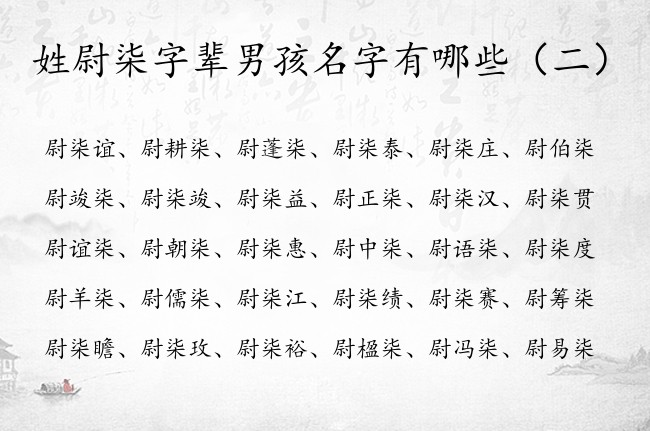 姓尉柒字辈男孩名字有哪些（二）
尉柒谊、尉耕柒、尉蓬柒、尉柒泰、尉柒庄、尉伯柒
尉竣柒、尉柒竣、尉柒益、尉正柒、尉柒汉、尉柒贯
尉谊柒、尉朝柒、尉柒惠、尉中柒、尉语柒、尉柒度
尉羊柒、尉儒柒、尉柒江、尉柒绩、尉柒赛、尉筹柒
尉柒瞻、尉柒玫、尉柒裕、尉楹柒、尉冯柒、尉易柒